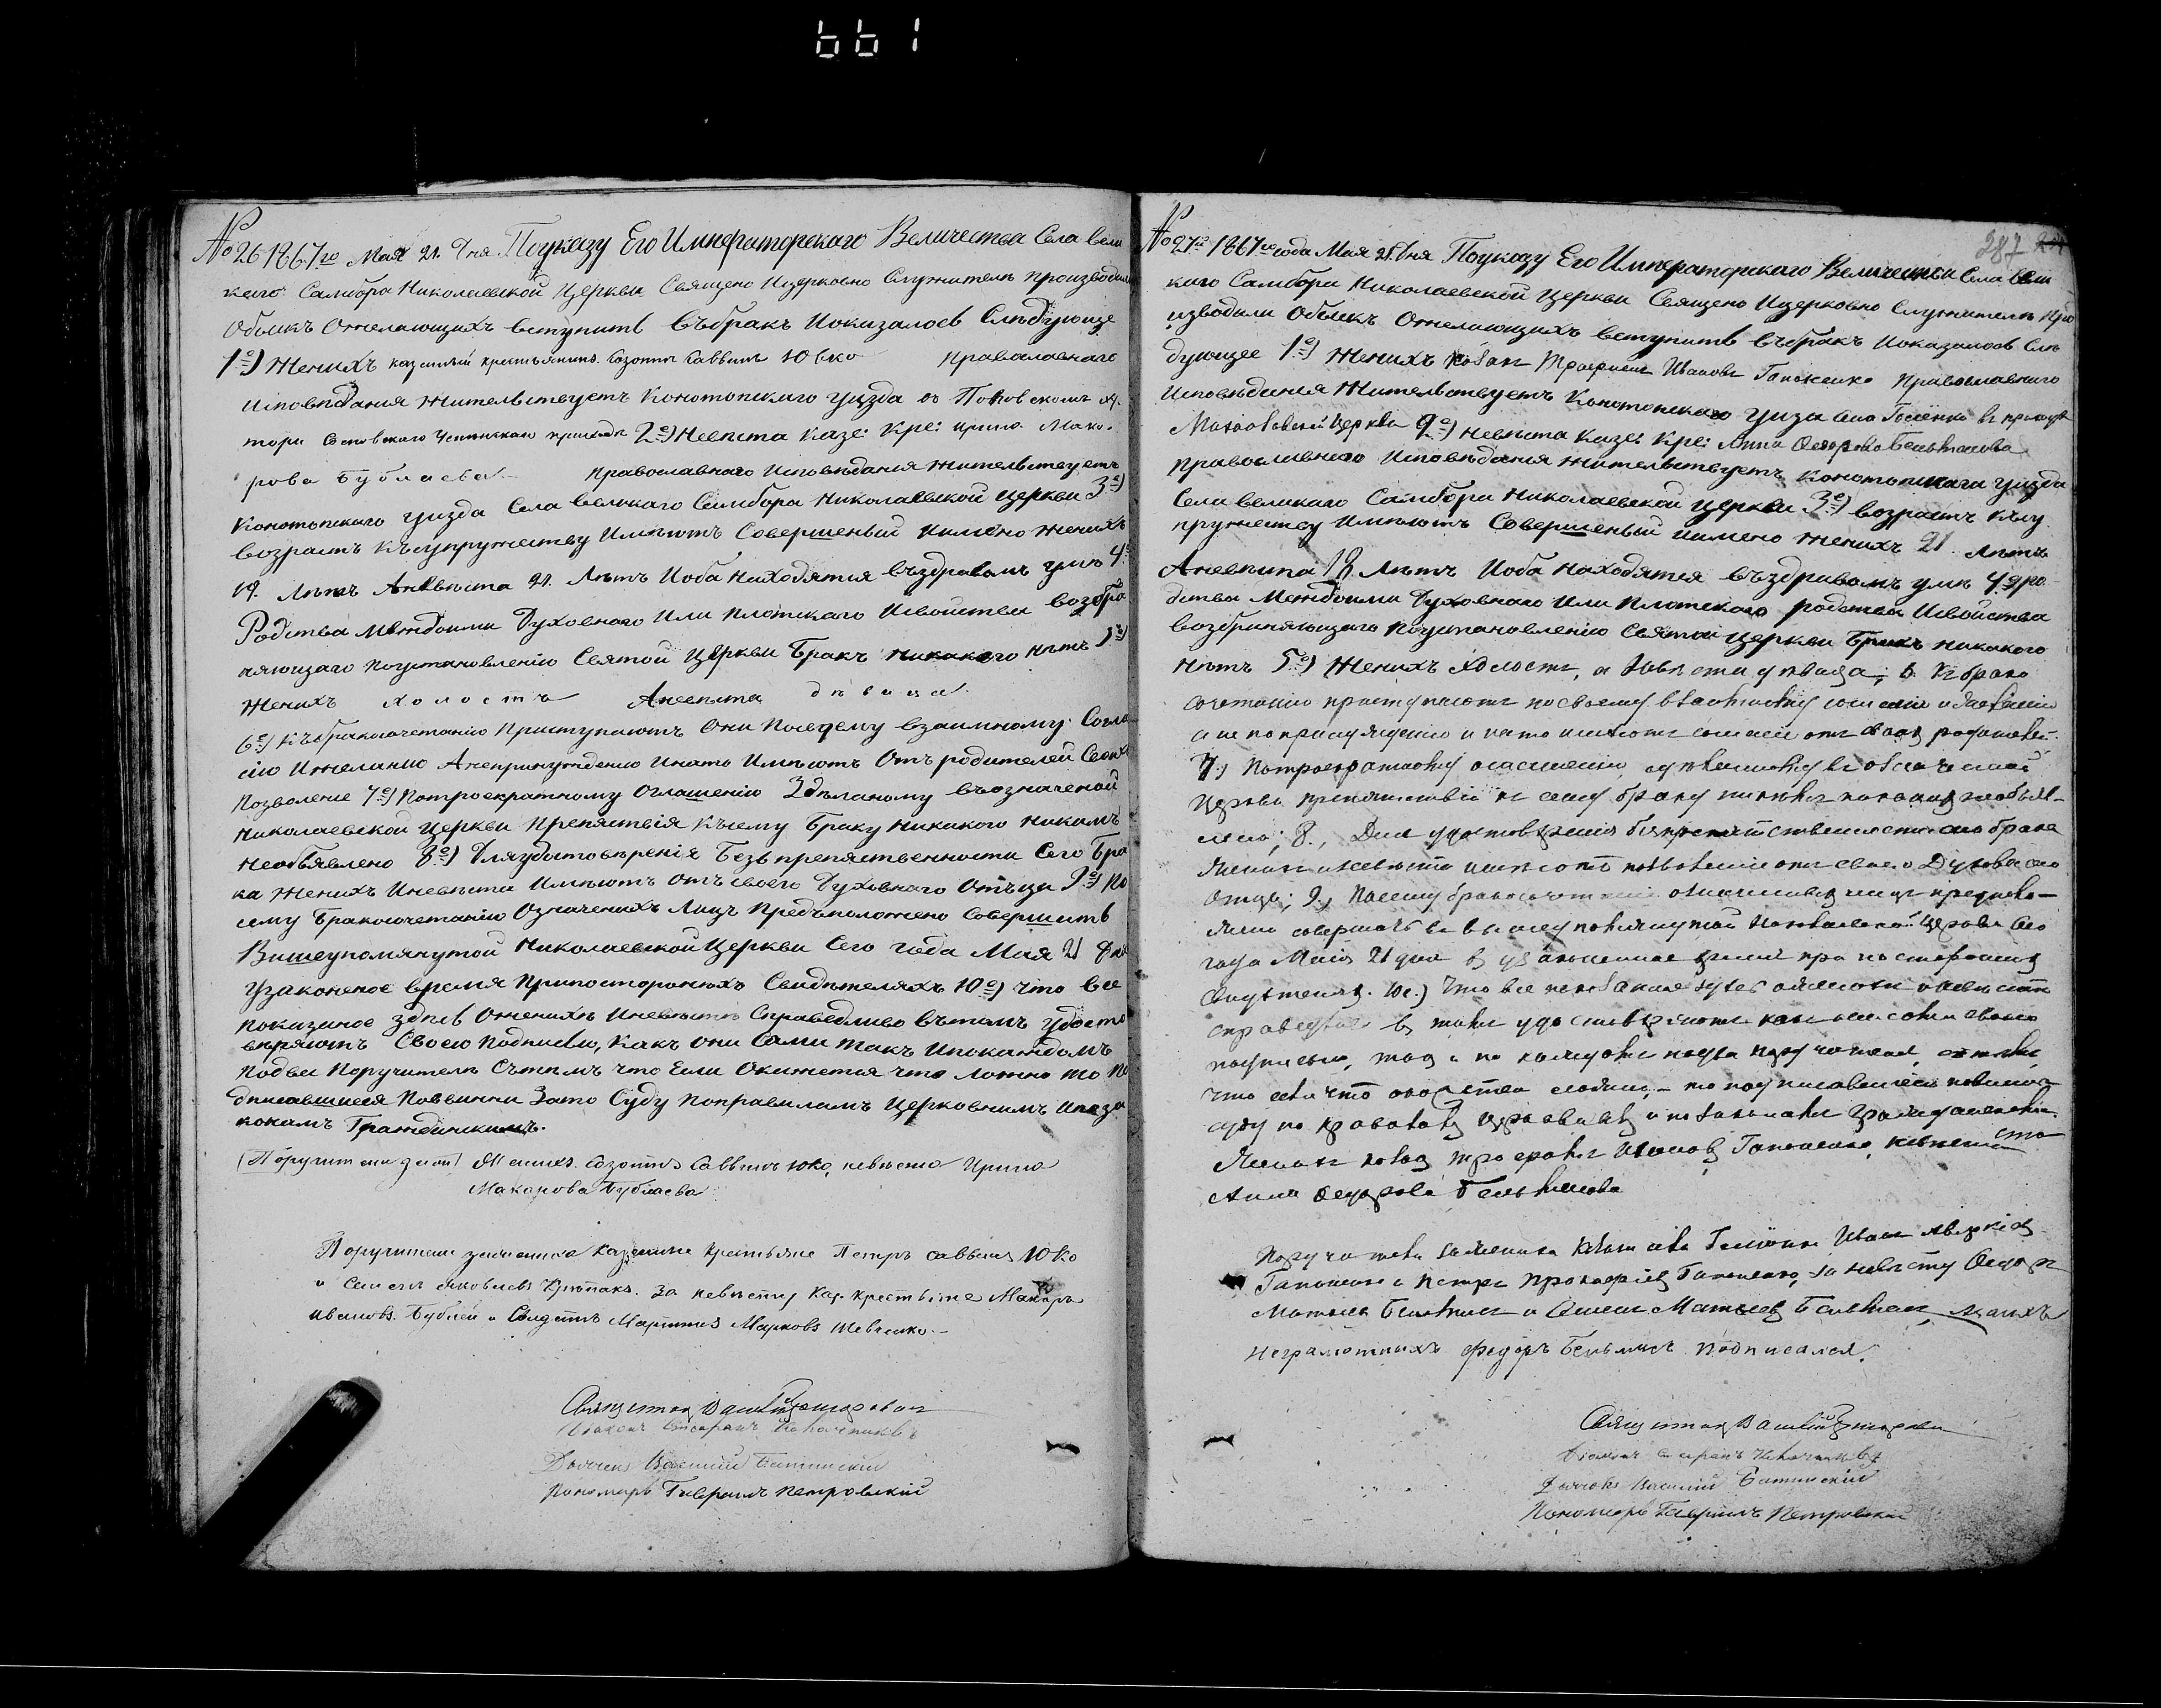 661
№ 26 1867го Мая 21. дня Поуказу Его Императорскаго Величества Села вели
каго Самбора Николаевской Церкви Священо Ицерковно Служители производили
Обыскъ Ожелающихъ вступить Въбракъ Иоказалось Слѣдующе
1е) Женихъ казенный крестьянинъ Созонтъ Саввинъ Юско Православнаго
Исповѣдания жительствуетъ Конотопскаго уизда
2е) Невѣста Казе: Кре: Ирина Мака-
рова Бублаева Православнаго Исповѣдания жительствуетъ
Конотопскаго уизда Села великаго Самбора Николаевской Церкви 3е)
возрастъ Късупружеству Имѣютъ Совершеный Имѣно женихъ
19. Лѣтъ Аневѣста 21. Лѣтъ Иоба Находятся Въздравомъ умѣ 4е
Родства Междоими Духовнаго Или Плотскаго Исвойства возбра
няющаго Поустановлению Святой Церкви Бракъ Никакого Нѣтъ 5е)
Женихъ холостъ Аневѣста дѣвица
6е) Къбракосочетанію Приступаютъ Они Посвоему взаимному Согла
сію Ижеланію Анепринуждению Инато Имѣютъ Отъ родителей Своихъ
Позволеніе 7е) Потроекратному Оглашенію Здѣланому Въозначеной
Николаевской Церкви Препятствія Късему Браку Никакого Никимъ
Необъявлено 8е) Дляудостовѣренія Безъпрепятственности Сего Бра
ка Женихъ Иневѣста Имѣютъ Отъ своего Духовнаго Отъца 9е) По
сему Бракосочетанію Означеныхъ Лицъ Предъположено Совершить
Вышеупомянутой Николаевской Церкви Сего Года Мая 21 дня
Узаконеное время Припостороннхъ Свидѣтеляхъ 10е) что все
показаное здѣсь Оженихѣ Иневѣстѣ Справедливо Вътомъ удосто
вѣряютъ Своею Подписью, Какъ Они Сами Такъ Ипокаждомъ
Подва Поручителя Сътѣмъ что Если Окажется что ложно то По
дписавшиеся Повинни Зато Суду Поправиламъ Церковнимъ Ипоза
конамъ Гражданскимъ.
Женихъ Созонтъ Саввинъ Юско, невѣста Ирина
Макарова Бублаева
Поручители зажениха казенние крестьяне Петръ Саввинъ Юско
и Семенъ Яковлевъ За невѣсту Каз. крестьяне Макаръ
Ивановъ Бублей и Солдатъ Мартинъ Марковъ Шевченко.
Священникъ
Діаконъ Стефанъ
Дьячекъ Василій Батинскій
Пономарь Гавріилъ Петровскій
287
№ 27е 1867го года Мая 21. дня Поуказу Его Императорскаго Величества Села вели
каго Самбора Николаевской Церкви Священо Ицерковно Служители Про
изводили Обыскъ Ожелающихъ вступить Въбракъ Иоказалось Слѣ
дующее 1е) Женихъ козакъ Трофимъ Ивановъ Гапоненко Православнаго
Исповѣдания Жительствуетъ Конотопскаго уизда
Церкви 2е) Невѣста Казе: Кре: Анна Федорова
Православнаго Исповѣдания жительствуетъ Конотопскаго уизда
Села великаго Самбора Николаевской Церкви 3е) возрастъ Късу
пружеству Имѣютъ Совершеный Имѣно женихъ 21. Лѣтъ
Аневѣста 18 Лѣтъ Иоба Находятся Въздравомъ умѣ 4е ро
дства Междоими Духовнаго Или Плотскаго родства Исвойства
возбраняющаго Поустановлению Святой Церкви Бракъ Никакого
Нѣтъ 5е) Женихъ холостъ, а невѣста дѣвица; 6. Къ брако
сочетанію приступаютъ по своему взаимному согласію и желанію
а не по принужденію и на то имѣютъ согласіе отъ своихъ родителей.
7.) Потроекратному оглашенію, сдѣланному въ означенной
Церкви препятствія къ сему браку никакого никѣмъ необъяв-
лено; 8., Для удостовѣренія безпрепятственности сего брака
Женихъ и невѣста имѣютъ позволеніе отъ своего Духовнаго
Отца; 9., Посему бракосочетаніе означенныхъ лицъ предполо-
жено совершить въ вышеупомянутой Николаевской Церкви сего
года Мая 21 дня въ узаконенное время при постороннихъ
свидѣтеляхъ. 10.) Что все показанное здѣсь о женихѣ и невѣстѣ
справедливо въ томъ удостовѣряютъ какъ они сами своею
подписью, такъ и по каждомъ по два поручителя, съ тѣмъ
что если что окажется ложно, то подписавшіеся повинны
суду по правиламъ церковнымъ и по законамъ гражданскимъ.
Женихъ козакъ Трофимъ Ивановъ Гапоненко, невѣста
Анна Федорова
Поручители зажениха Иванъ
Гапоненко и Петръ Прокофіевъ Гапоненко, за невѣсту Федоръ
а за нихъ
неграмотныхъ Федоръ подписался.
Священникъ
Діаконъ Стефанъ
Дьячокъ Василій Батинскій
Пономарь Гавріилъ Петровскій